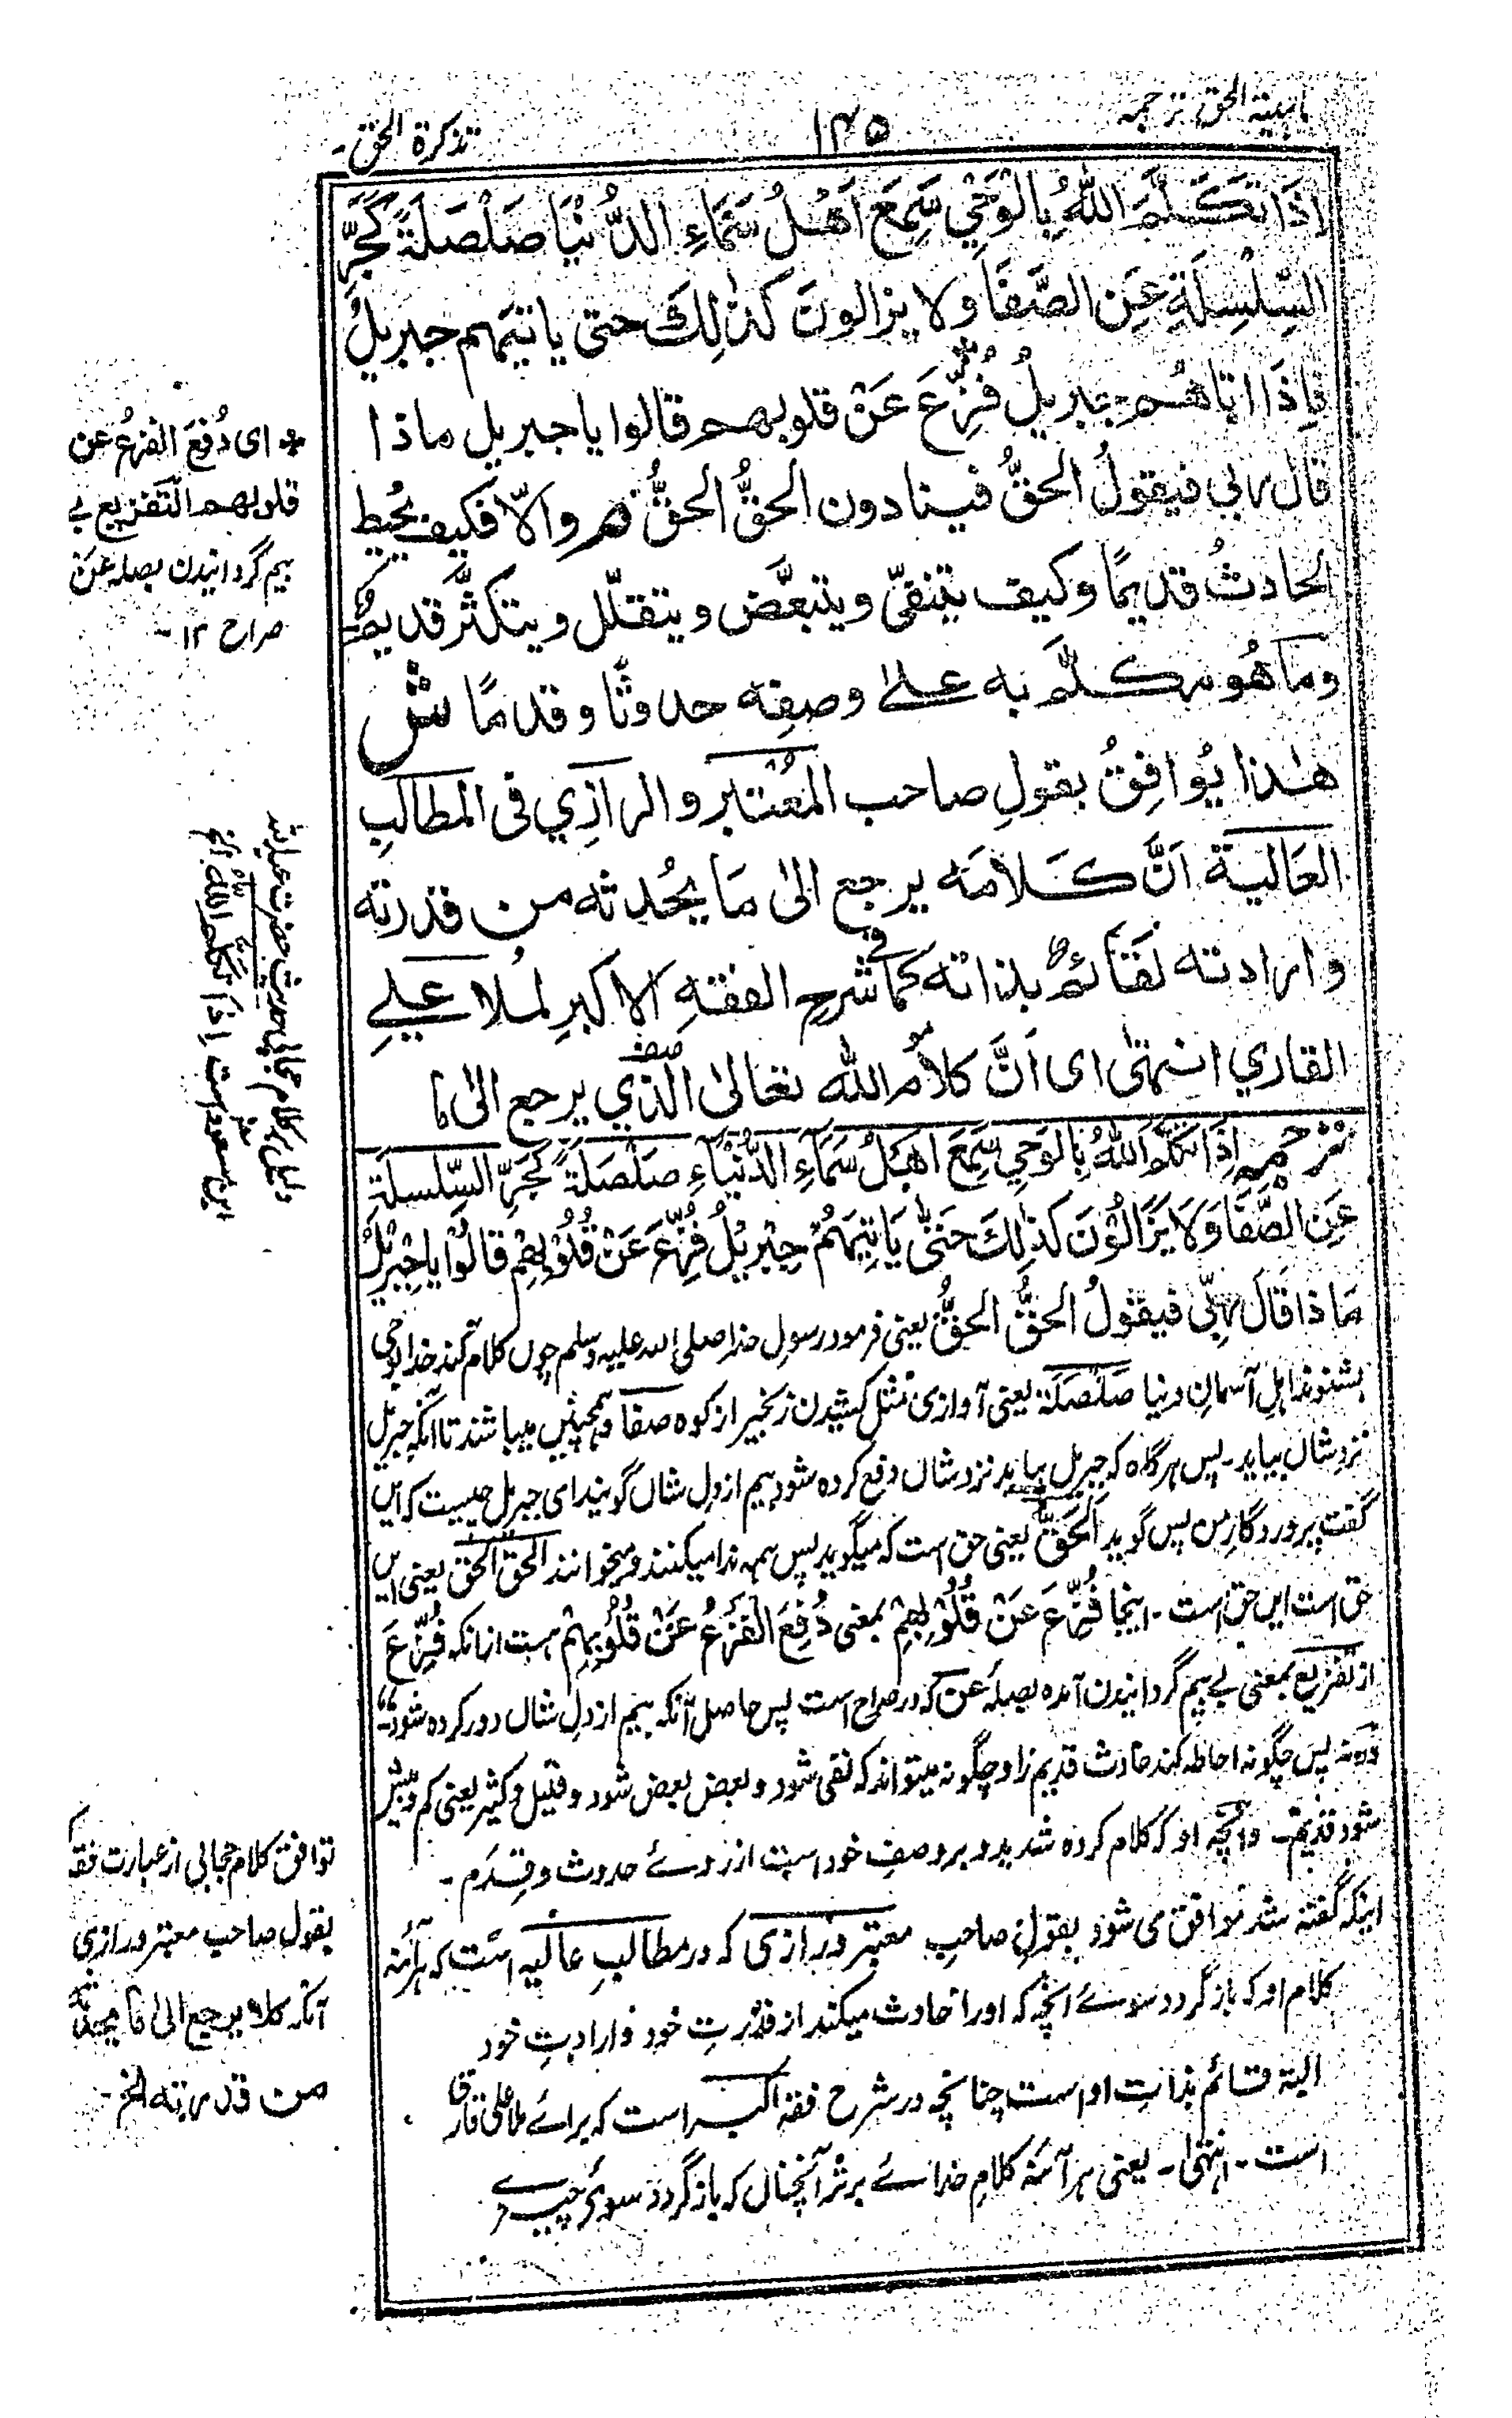 تذکرة الحق -
۱۴۵
ترجمہ
اِذَا تَكَلَّمَ اللهُ بِالْوَحْيِ سَمِعَ اَهْلُ سَمَاءِ الدُّنْيَا صَلْصَلَةً كَجَرِّ
السِّلْسِلَةِ عَنِ الصَّفَا ولا يزالون كذٰلك حتى ياتيهم جبريلُ
فاِذَا اتاهُم جبريلُ فُزِّعَ عَنْ قلوبهم قالوا يا جبريل ماذا
قال ربي فيقولُ الحقُّ فينادون الحقُّ الحقُّ والّا فكيف يُحيط
الحادثُ قديمًا وكيف ويتبعَّض ويتقلّل ويتكثّر قديم
وما هُو تكلَّم به على وصفِه حدوثًا وقدمًا ش
هٰذا يُوافِقُ بقولِ صاحب المُعْتبَر والرازِي فى المطالبِ
العَالية اَنَّ كَلَامَه يرجع الىٰ مَا يُحْدثه من قدرته
وارادته لقائمٌ بذاته كما فى شرح الفقهِ الاكبرِ لمُلا علي
القاري انتهىٰ اى اَنَّ كلامُ الله تعالىٰ الذي يرجع الىٰ ما
ترجمہ اِذَا تَكَلَّمَ اللهُ بِالوَحْيِ سَمِعَ اَهْلُ سَمَآءِ الدُّنْيَاءِ صَلْصَلَةً كَجَرِّ السِّلسلة
عَنِ الصَّفَا وَلَا يَزَالُوْنَ كذٰلِكَ حَتىّٰ يَاتِيَهُمْ جِبْرِيْلُ فُزِّعَ عَنْ قُلُوْبِهِمْ قالُوْا يا جِبْرِيْلُ
مَاذا قَالَ رَبِّى فيقولُ الحقُّ الحقُّ یعنی فرمود رسولِ خدا صلی الله علیہ وسلم چوں کلام کند خدا بوحی
بشنوند اہلِ آسمانِ دنیا صَلْصَلَة یعنی آوازی مثل کشیدن زنجیر از کوہ صفا وہمچنیں میباشند تا آنکہ جبریل
نزدِ شاں بیاید - پس ہرگاہ کہ جبریل بیاید نزد شاں دفع کردہ شود بیم از دلِ شاں گویند ای جبریل چیست کہ ایں
گفت پروردگارِ من پس گوید اَلحَقُّ یعنی حق است کہ میگوید پس ہمہ ندا میکنند و میخوانند الحق الحق یعنی ایں
حق است ایں حق است - اینجا فُزِّعَ عَنْ قُلُوْبِهِمْ بمعنی دُفِعَ الفَزَعُ عَنْ قُلُوْبِهِمْ ہست ازانکہ فُزِّعَ
از تفزیع بمعنی بے بیم گردانیدن آمدہ بصلۂ عن کہ در صراح است پس حاصل آنکہ بیم از دلِ شاں دور کردہ شود
ورنہ پس چگونہ احاطہ کند حادث قدیم را و چگونہ میتواند کہ نفی شود و بعض بعض شود و قلیل و کثیر یعنی کم و بیش
شود قدیم - وآنچہ او کہ کلام کردہ شد بدو بر وصفِ خود است از روے حدوث و قِدَم -
اینکہ گفتہ شد موافق می شود بقولِ صاحبِ معتبر و رازی کہ در مطالبِ عالیہ است کہ ہر آئنہ
کلام او کہ باز گردد سوئے آنچہ کہ او را حادث میکند از قدرتِ خود و ارادتِ خود
البتہ قائم بذاتِ او است چنانچہ در شرح فقہ اکبر است کہ براے ملا علی قاری
است - انتهیٰ - یعنی ہر آئنہ کلامِ خدائے برتر آنچناں کہ باز گردد سوئ چیزے
* اى دُفِعَ الفزعُ عن
قلوبهم التفزيع بے
بیم گردانیدن بصلہ عن
صراح ۱۲
ابن مسعود است اِذَا تَكَلَّمَ اللهُ الخ
توافق کلام از عبارت فقہ
بقول صاحب معتبر و رازی
آنکہ کلامه يرجع الىٰ ما يحدثه
من قدرته الخ -